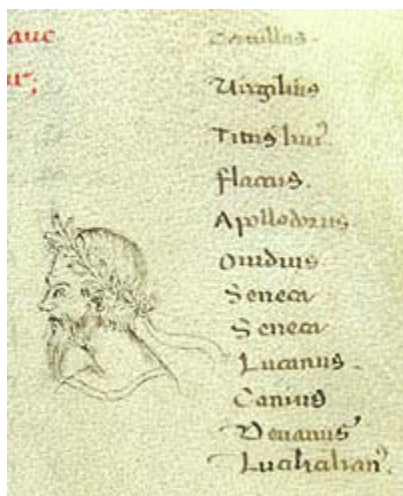 auc
Uirgilius
Titus liui⁹.
flacus.
Apollodorus.
Ouidius
Seneca
Seneca
Lucanus.
Canius